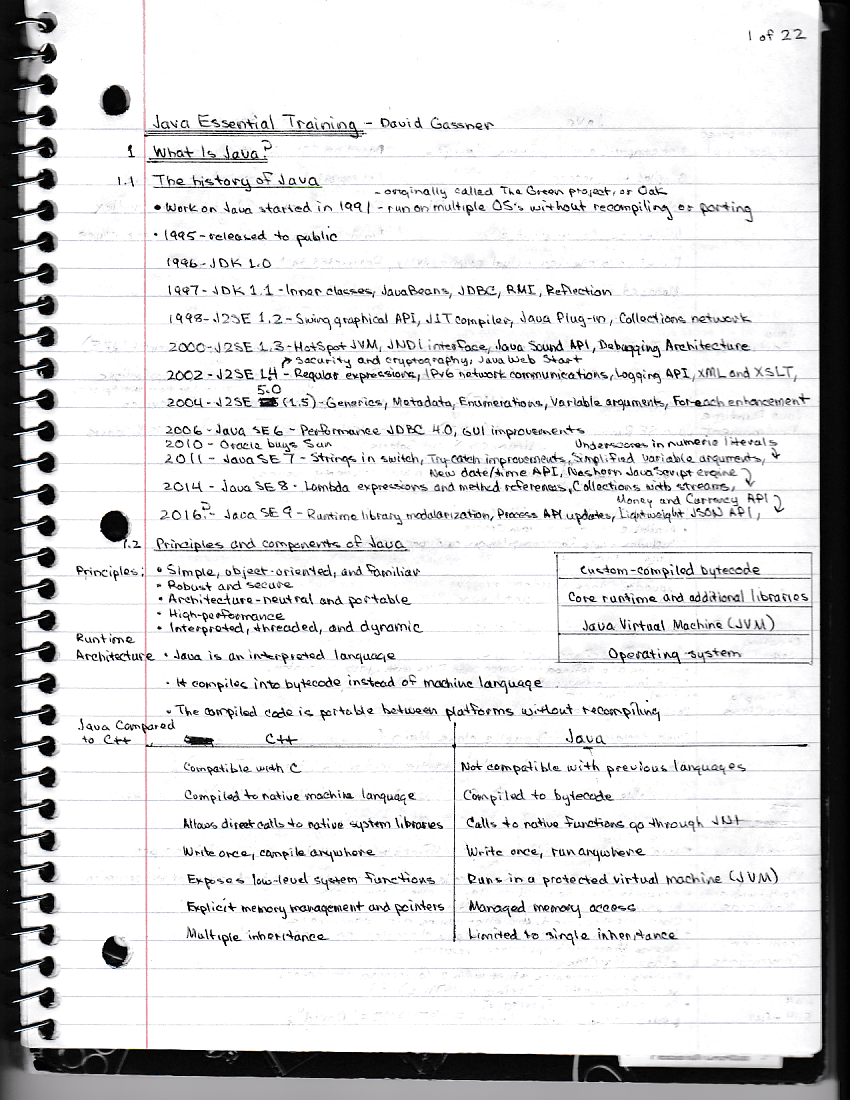 1 of 22
Java Essential Training - David Gassner
1 What Is Java?
1.1 The history of Java
- originally called The Green project, or Oak
• Work on Java started in 1991 - run on multiple OS's without recompiling or porting
• 1995 - released to public
1996 - JDK 1.0
1997 - JDK 1.1 - Inner classes, JavaBeans, JDBC, RMI, Reflection
1998 - J2SE 1.2 - Swing graphical API, JIT compiler, Java Plug-in, Collections network
2000 - J2SE 1.3 - HotSpot JVM, JNDI interface, Java Sound API, Debugging Architecture
security and cryptography, Java Web Start
2002 - J2SE 1.4 - Regular expressions, IPv6 network communications, Logging API, XML and XSLT,
5.0
2004 - J2SE (1.5) - Generics, Metadata, Enumerations, Variable arguments, For-each enhancement
2006 - Java SE 6 - Performance JDBC 4.0, GUI improvements
2010 - Oracle buys Sun Underscores in numeric literals
2011 - Java SE 7 - Strings in switch, Try-catch improvements, Simplified variable arguments,
New date/time API, Nashorn JavaScript engine
2014 - Java SE 8 - Lambda expressions and method references, Collections with streams,
Money and Currency API
2016? - Java SE 9 - Runtime library modularization, Process API updates, Lightweight JSON API,
1.2 Principles and components of Java
Principles: • Simple, object-oriented, and familiar
• Robust and secure
• Architecture-neutral and portable
• High-performance
• Interpreted, threaded, and dynamic
Custom-compiled bytecode
Core runtime and additional libraries
Java Virtual Machine (JVM)
Operating system
Runtime
Architecture • Java is an interpreted language
• It compiles into bytecode instead of machine language
• The compiled code is portable between platforms without recompiling
Java Compared
to C++ C++ Java
Compatible with C Not compatible with previous languages
Compiled to native machine language Compiled to bytecode
Allows direct calls to native system libraries Calls to native functions go through JNI
Write once, compile anywhere Write once, run anywhere
Exposes low-level system functions Runs in a protected virtual machine (JVM)
Explicit memory management and pointers Managed memory access
Multiple inheritance Limited to single inheritance